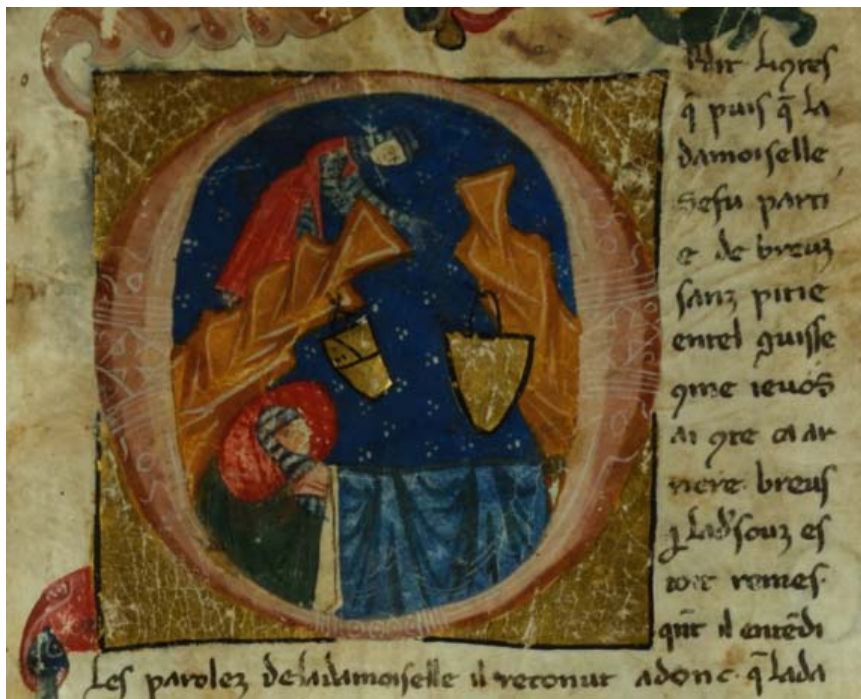 R dit li 9tes
q̄ puis q̄ la
damoiselle
se fu parti
e de breuz
sanz pitie
en tel guisse
9me ie uos
ai 9te ca ar
riere. breus
souz es
toit remes.
qn̄t il entēdi
les parolez de la damoiselle il reconut adonc. q̄ la da